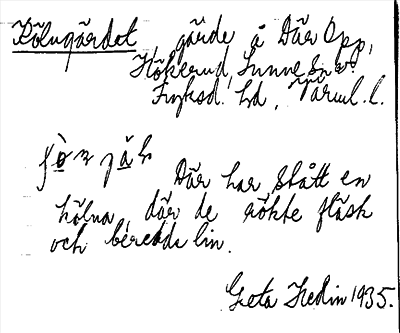 Kölngärdet, gärde å Där Opp,
Hökerud, Sunne s:n
Fryksd. hd, Värml. l.
Där har stått en
kölna, där de rökte fläsk
och beredde lin.
Greta Hedin 1935.